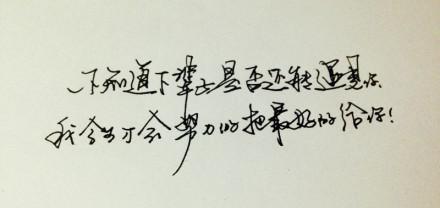 不知道下辈子是否还能遇见你
我今生才会努力的把最好的给你！